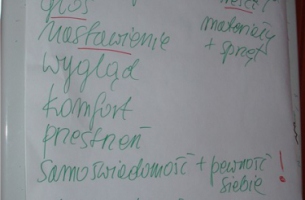 głos
nastawienie
wygląd
komfort
przestrzeń
samoświadomość + pewność siebie !
materiały
+ sprzęt